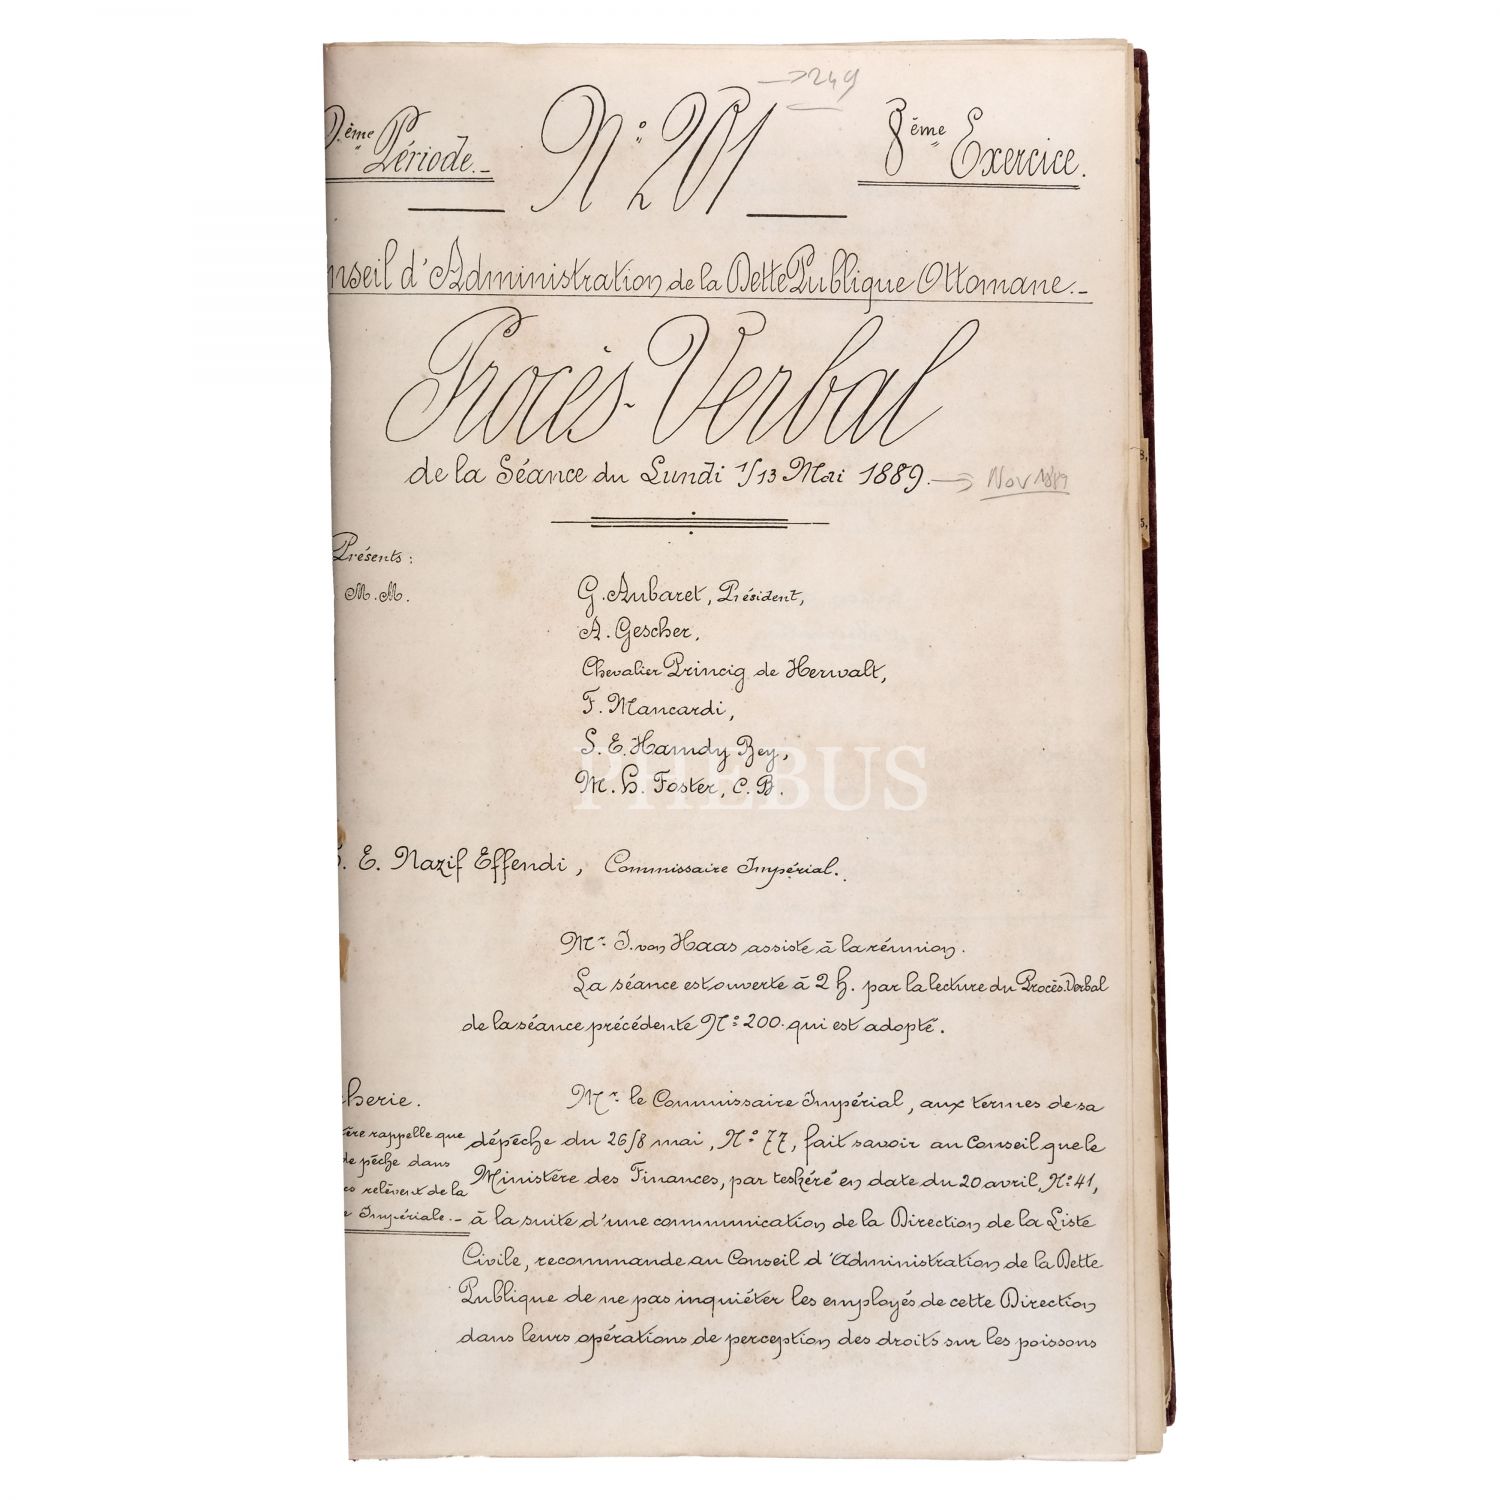 → 249
ème Période.- N° 201 8ème Exercice.
nseil d'Administration de la Dette Publique Ottomane.-
Procès-Verbal
de la Séance du Lundi 1/13 Mai 1889. → Nov 1889
Présents:
M.M.
G. Aubaret, Président,
A. Gescher,
Chevalier Princig de Herwalt,
F. Mancardi,
S.E. Hamdy Bey,
M. H. Foster, C.B.
PHEBUS
. E. Nazif Effendi, Commissaire Impérial.
Mr. J. von Haas assiste à la réunion.
La séance est ouverte à 2 h. par la lecture du Procès-Verbal
de la séance précédente N° 200 qui est adopté.
cherie.
ère rappelle que
de pêche dans
es relèvent de la
e Impériale.-
Mr. le Commissaire Impérial, aux termes de sa
dépêche du 26/8 mai, N° 77, fait savoir au Conseil que le
Ministère des Finances, par teskéré en date du 20 avril, N° 41,
à la suite d'une communication de la Direction de la Liste
Civile, recommande au Conseil d'Administration de la Dette
Publique de ne pas inquiéter les employés de cette Direction
dans leurs opérations de perception des droits sur les poissons